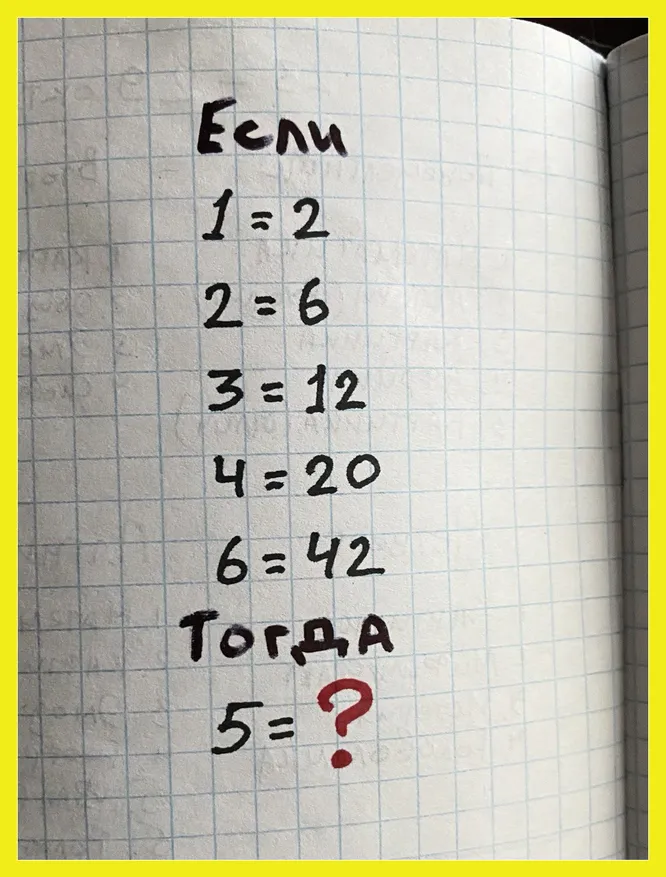 Если
1 = 2
2 = 6
3 = 12
4 = 20
6 = 42
Тогда
5 = ?